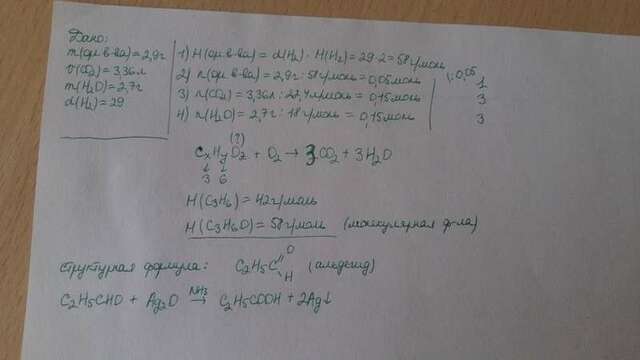 Дано:
m(орг. в-ва) = 2,9г
V(CO₂) = 3,36л
m(H₂O) = 2,7г
d(H₂) = 29
1) M(орг. в-ва) = d(H₂) · M(H₂) = 29·2 = 58г/моль
2) n(орг. в-ва) = 2,9г : 58г/моль = 0,05моль
3) n(CO₂) = 3,36л : 22,4л/моль = 0,15моль
4) n(H₂O) = 2,7г : 18г/моль = 0,15моль
: 0,05
1
3
3
(?)
CxHyOz + O₂ → 3CO₂ + 3H₂O
↓ ↓
3 6
M(C₃H₆) = 42г/моль
M(C₃H₆O) = 58г/моль (молекулярная ф-ла)
структурная формула: C₂H₅C O H (альдегид)
C₂H₅CHO + Ag₂O NH₃ → C₂H₅COOH + 2Ag↓